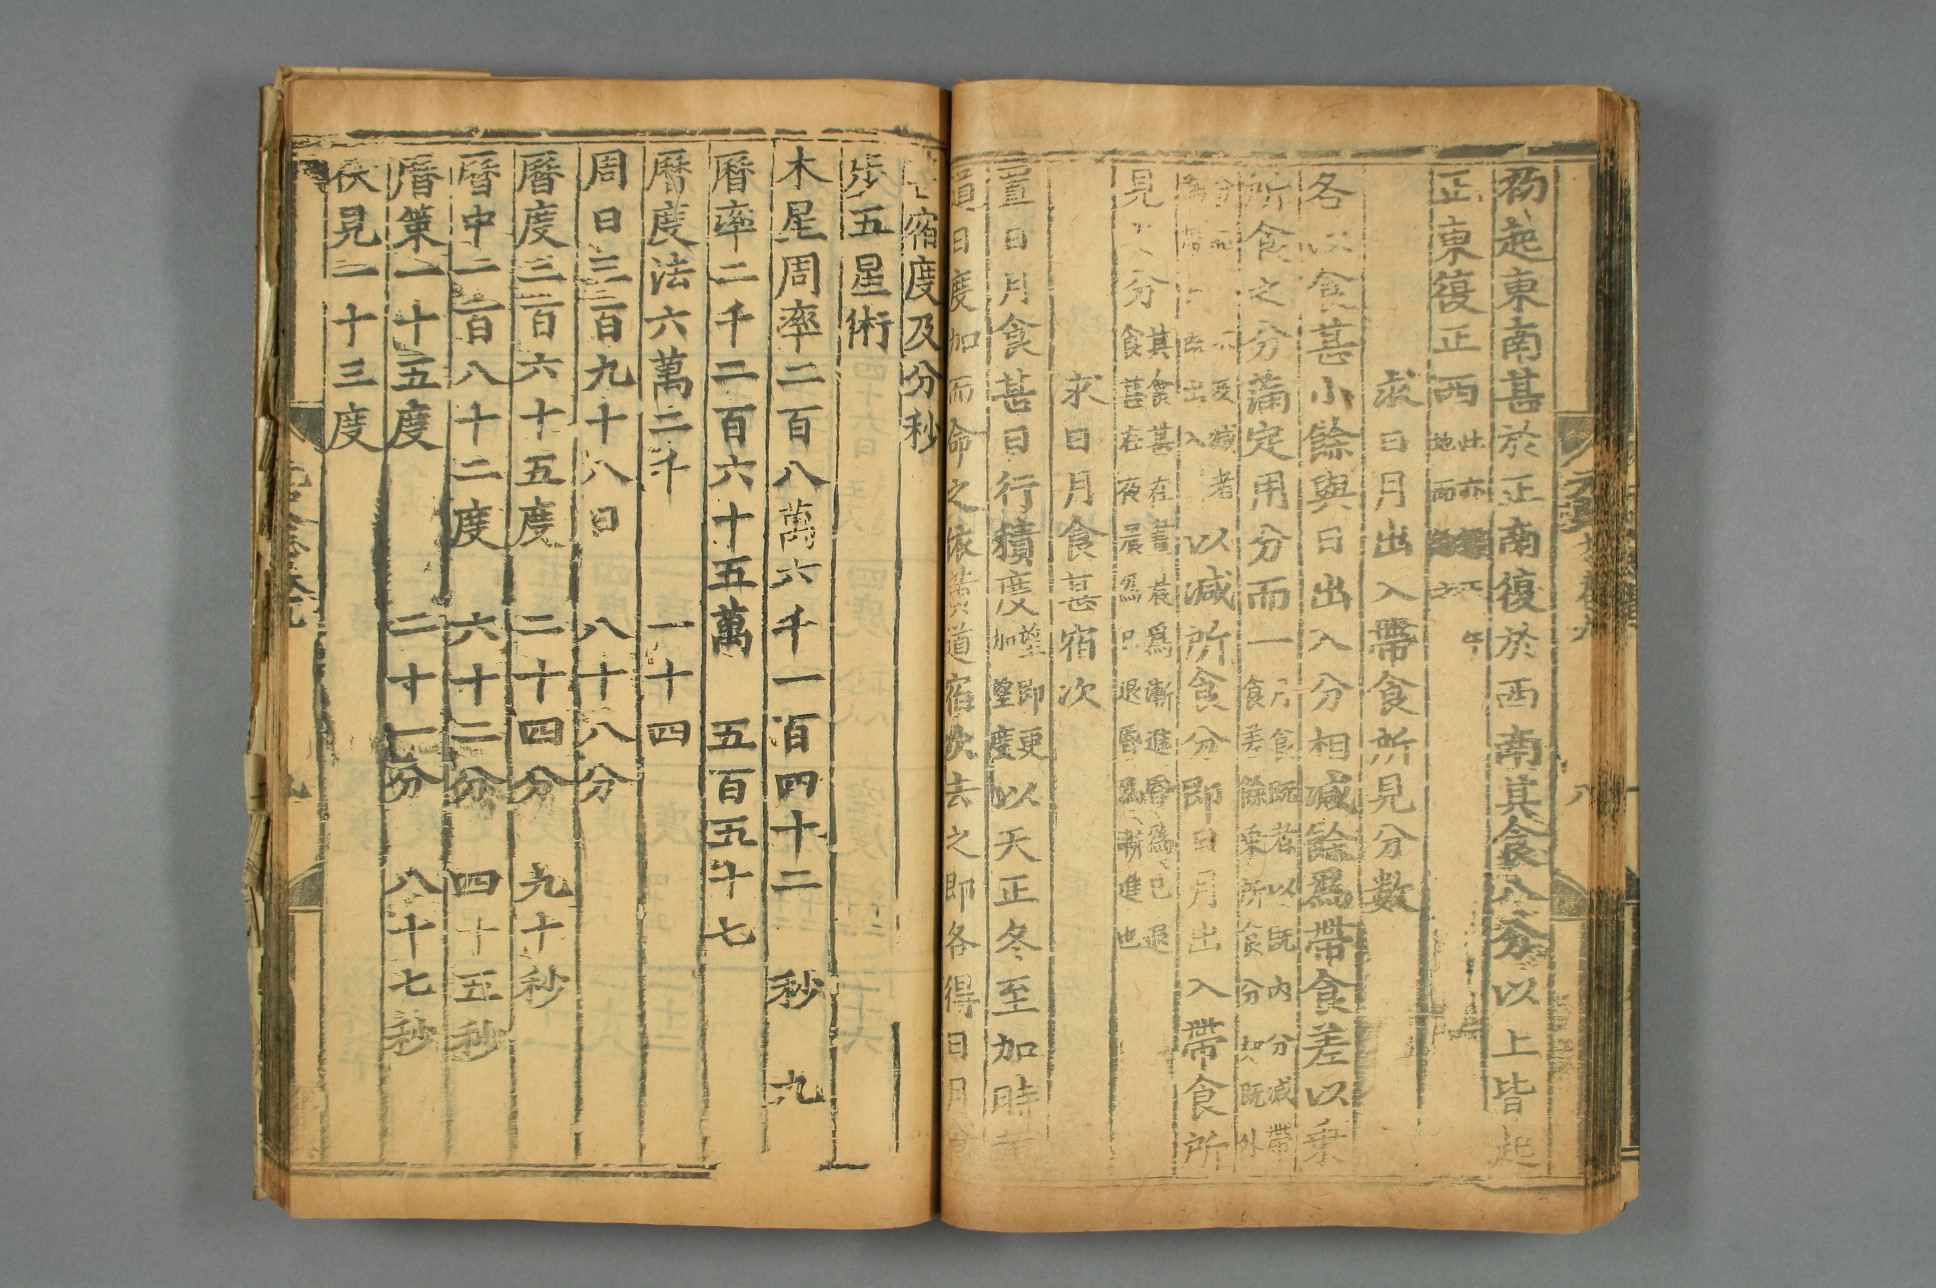 初起東南甚於正南復於西南其食八分以上皆起
正東復正西此亦
地而
求日月出入帶食所見分數
各以食甚小餘與日出入分相減餘爲帶食差以乘
所食之分滿定用分而一
食差餘乘所食分如既外
以減所食分即日月出入帶食所
見之分其食甚在晝晨爲漸進昏爲已退
食甚在夜晨爲已退昏爲漸進也
求日月食甚宿次
置日月食甚日行積度望即更
加望度以天正冬至加時黃
道日度加而命之依黃道宿次去之即各得日月食
甚宿度及分秒
步五星術
木星周率二百八萬六千一百四十二 秒 九
曆率二千二百六十五萬 五百五十七
曆度法六萬二千 一十四
周日三百九十八日 八十八分
曆度三百六十五度 二十四分 九十秒
曆中一百八十二度 六十二分 四十五秒
曆策一十五度 二十一分 八十七秒
伏見一十三度